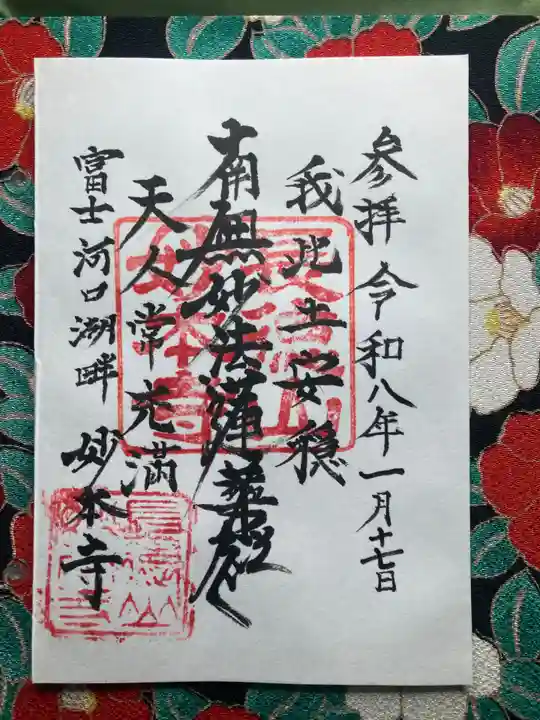 参拝 令和八年一月十七日
我此土安穏
南無妙法蓮華経
天人常充満
富士河口湖畔 妙本寺
妙本寺